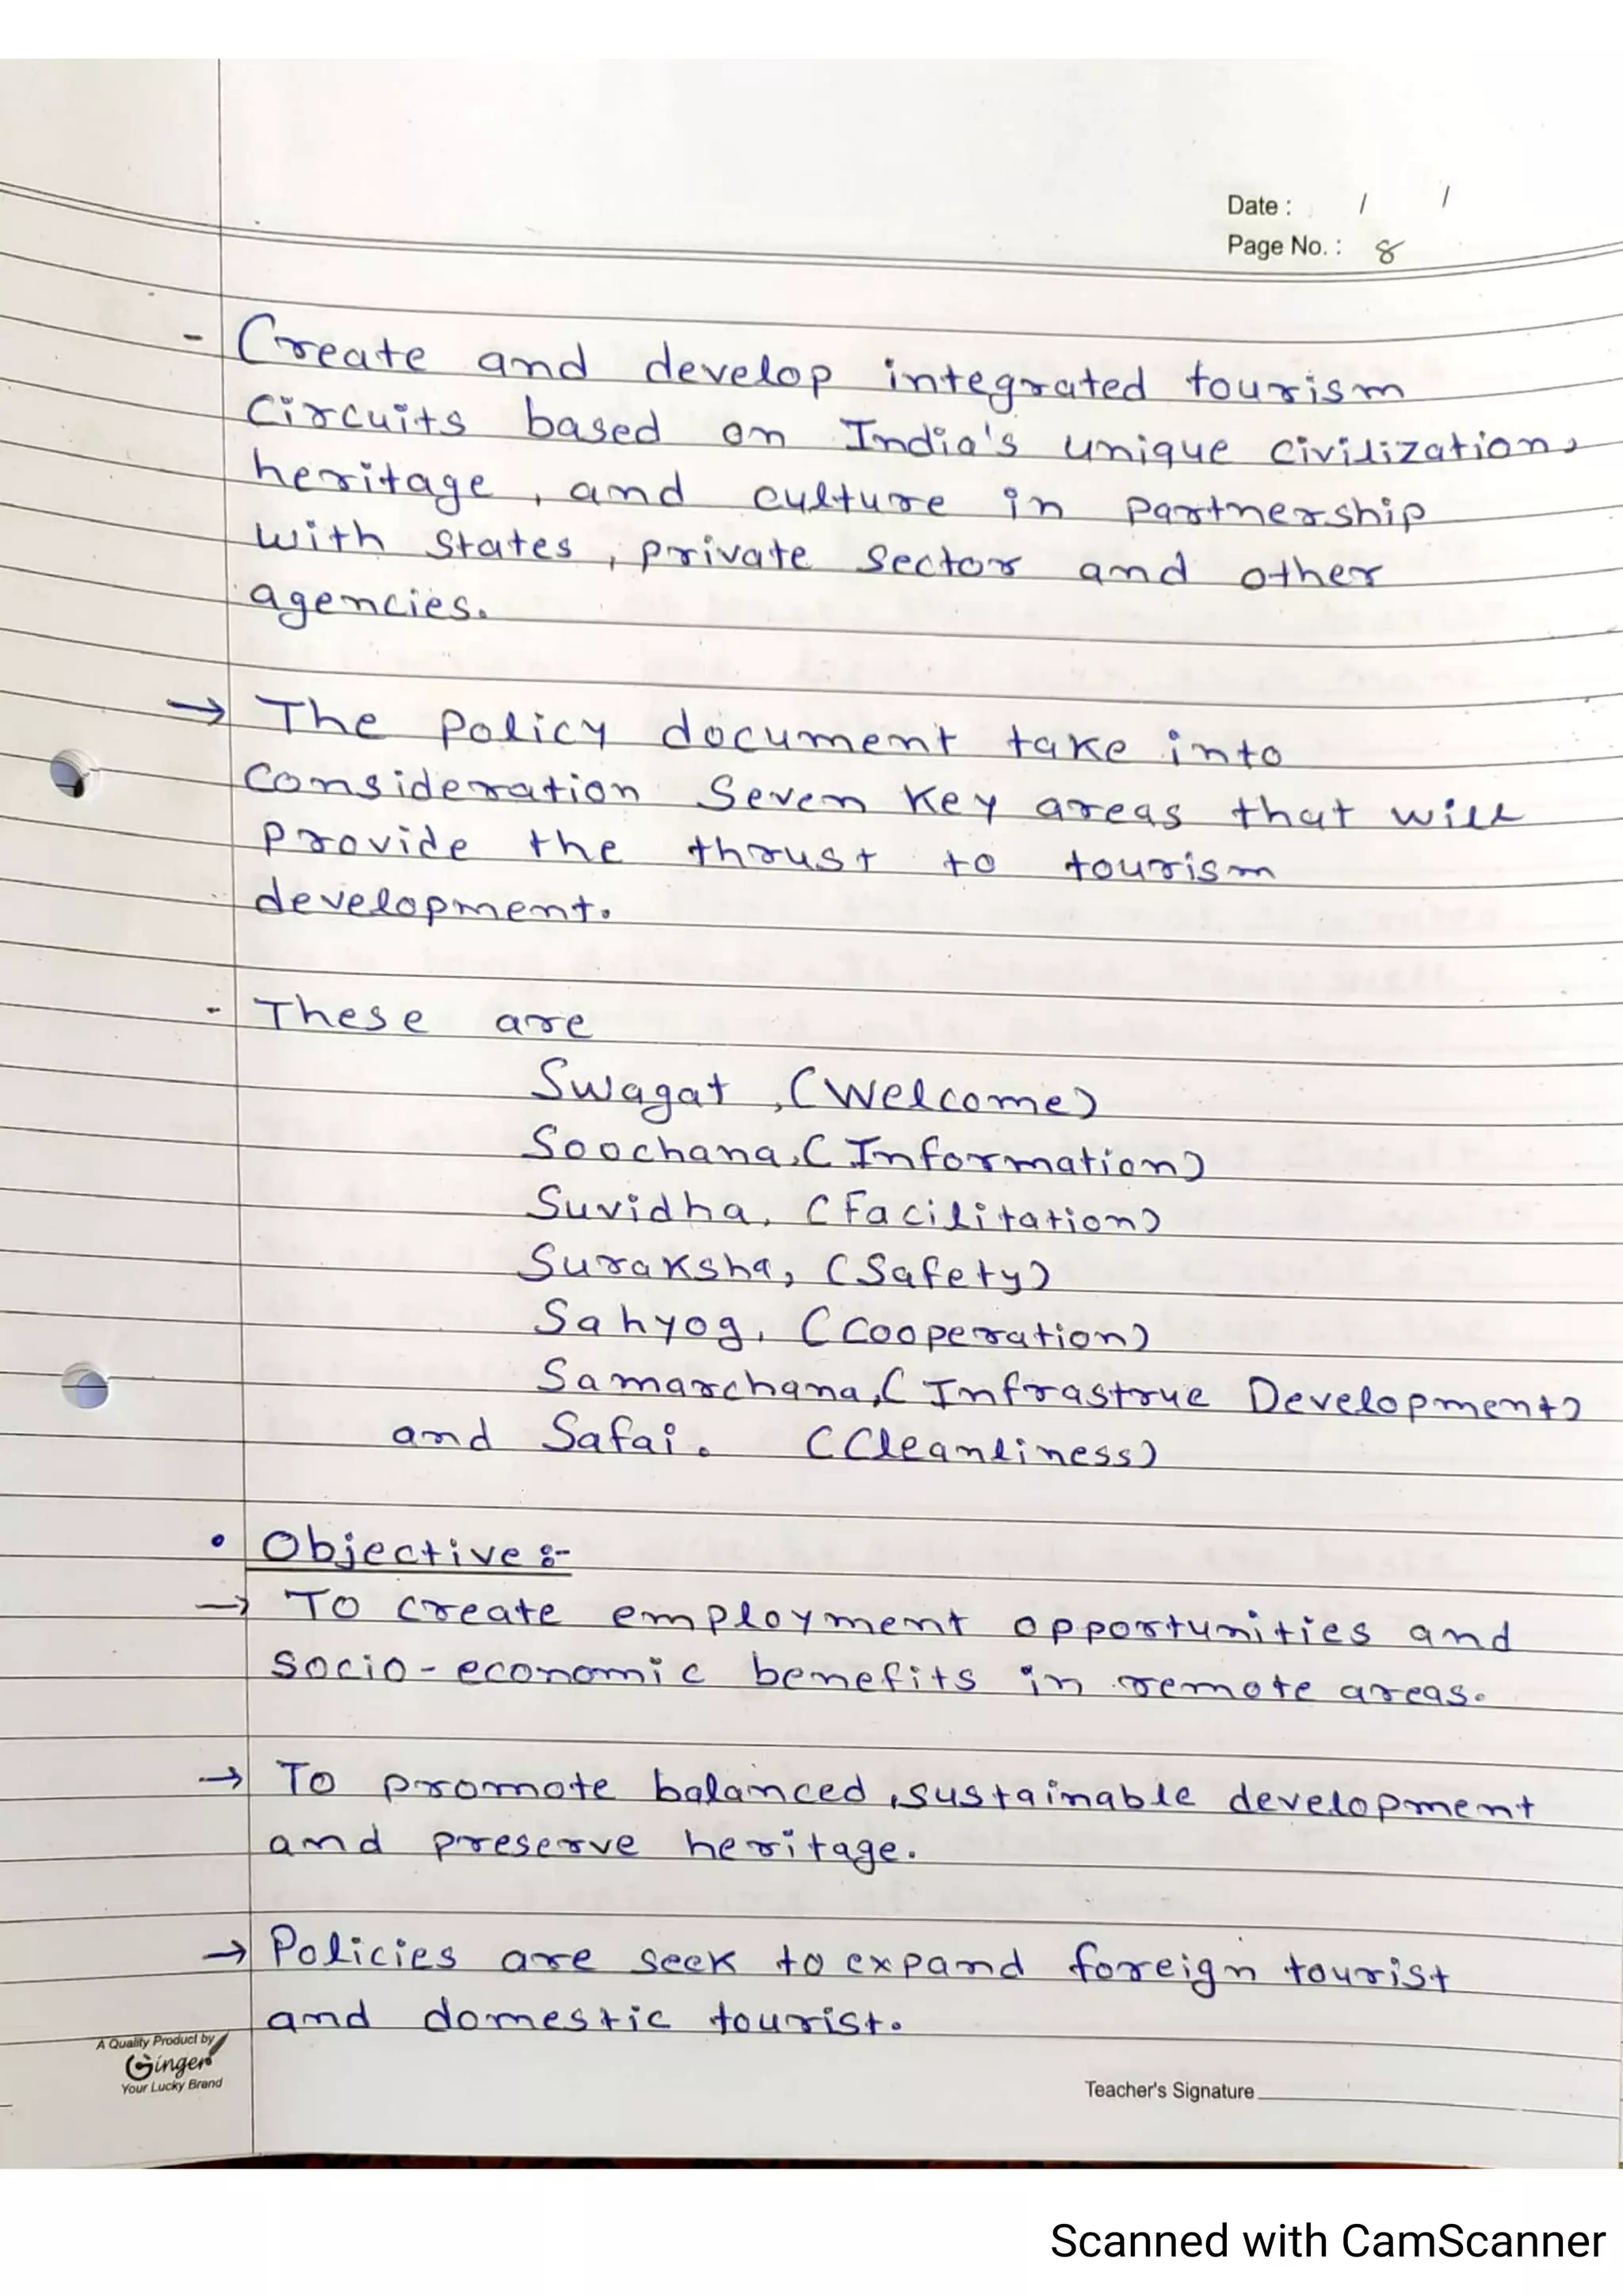 Date : / /
Page No. : 8
- Create and develop integrated tourism
circuits based on India's unique civilization,
heritage, and culture in partnership
with states, private sector and other
agencies.
→ The policy document take into
consideration seven key areas that will
provide the thrust to tourism
development.
- These are
Swagat, (Welcome)
Soochana, (Information)
Suvidha, (Facilitation)
Suraksha, (Safety)
Sahyog, (Cooperation)
Samarchana, (Infrastrue Development)
and Safai. (Cleanliness)
• Objective :-
→ To create employment opportunities and
socio-economic benefits in remote areas.
→ To promote balanced, sustainable development
and preserve heritage.
→ Policies are seek to expand foreign tourist
and domestic tourist.
A Quality Product by
Ginger
Your Lucky Brand
Teacher's Signature
Scanned with CamScanner